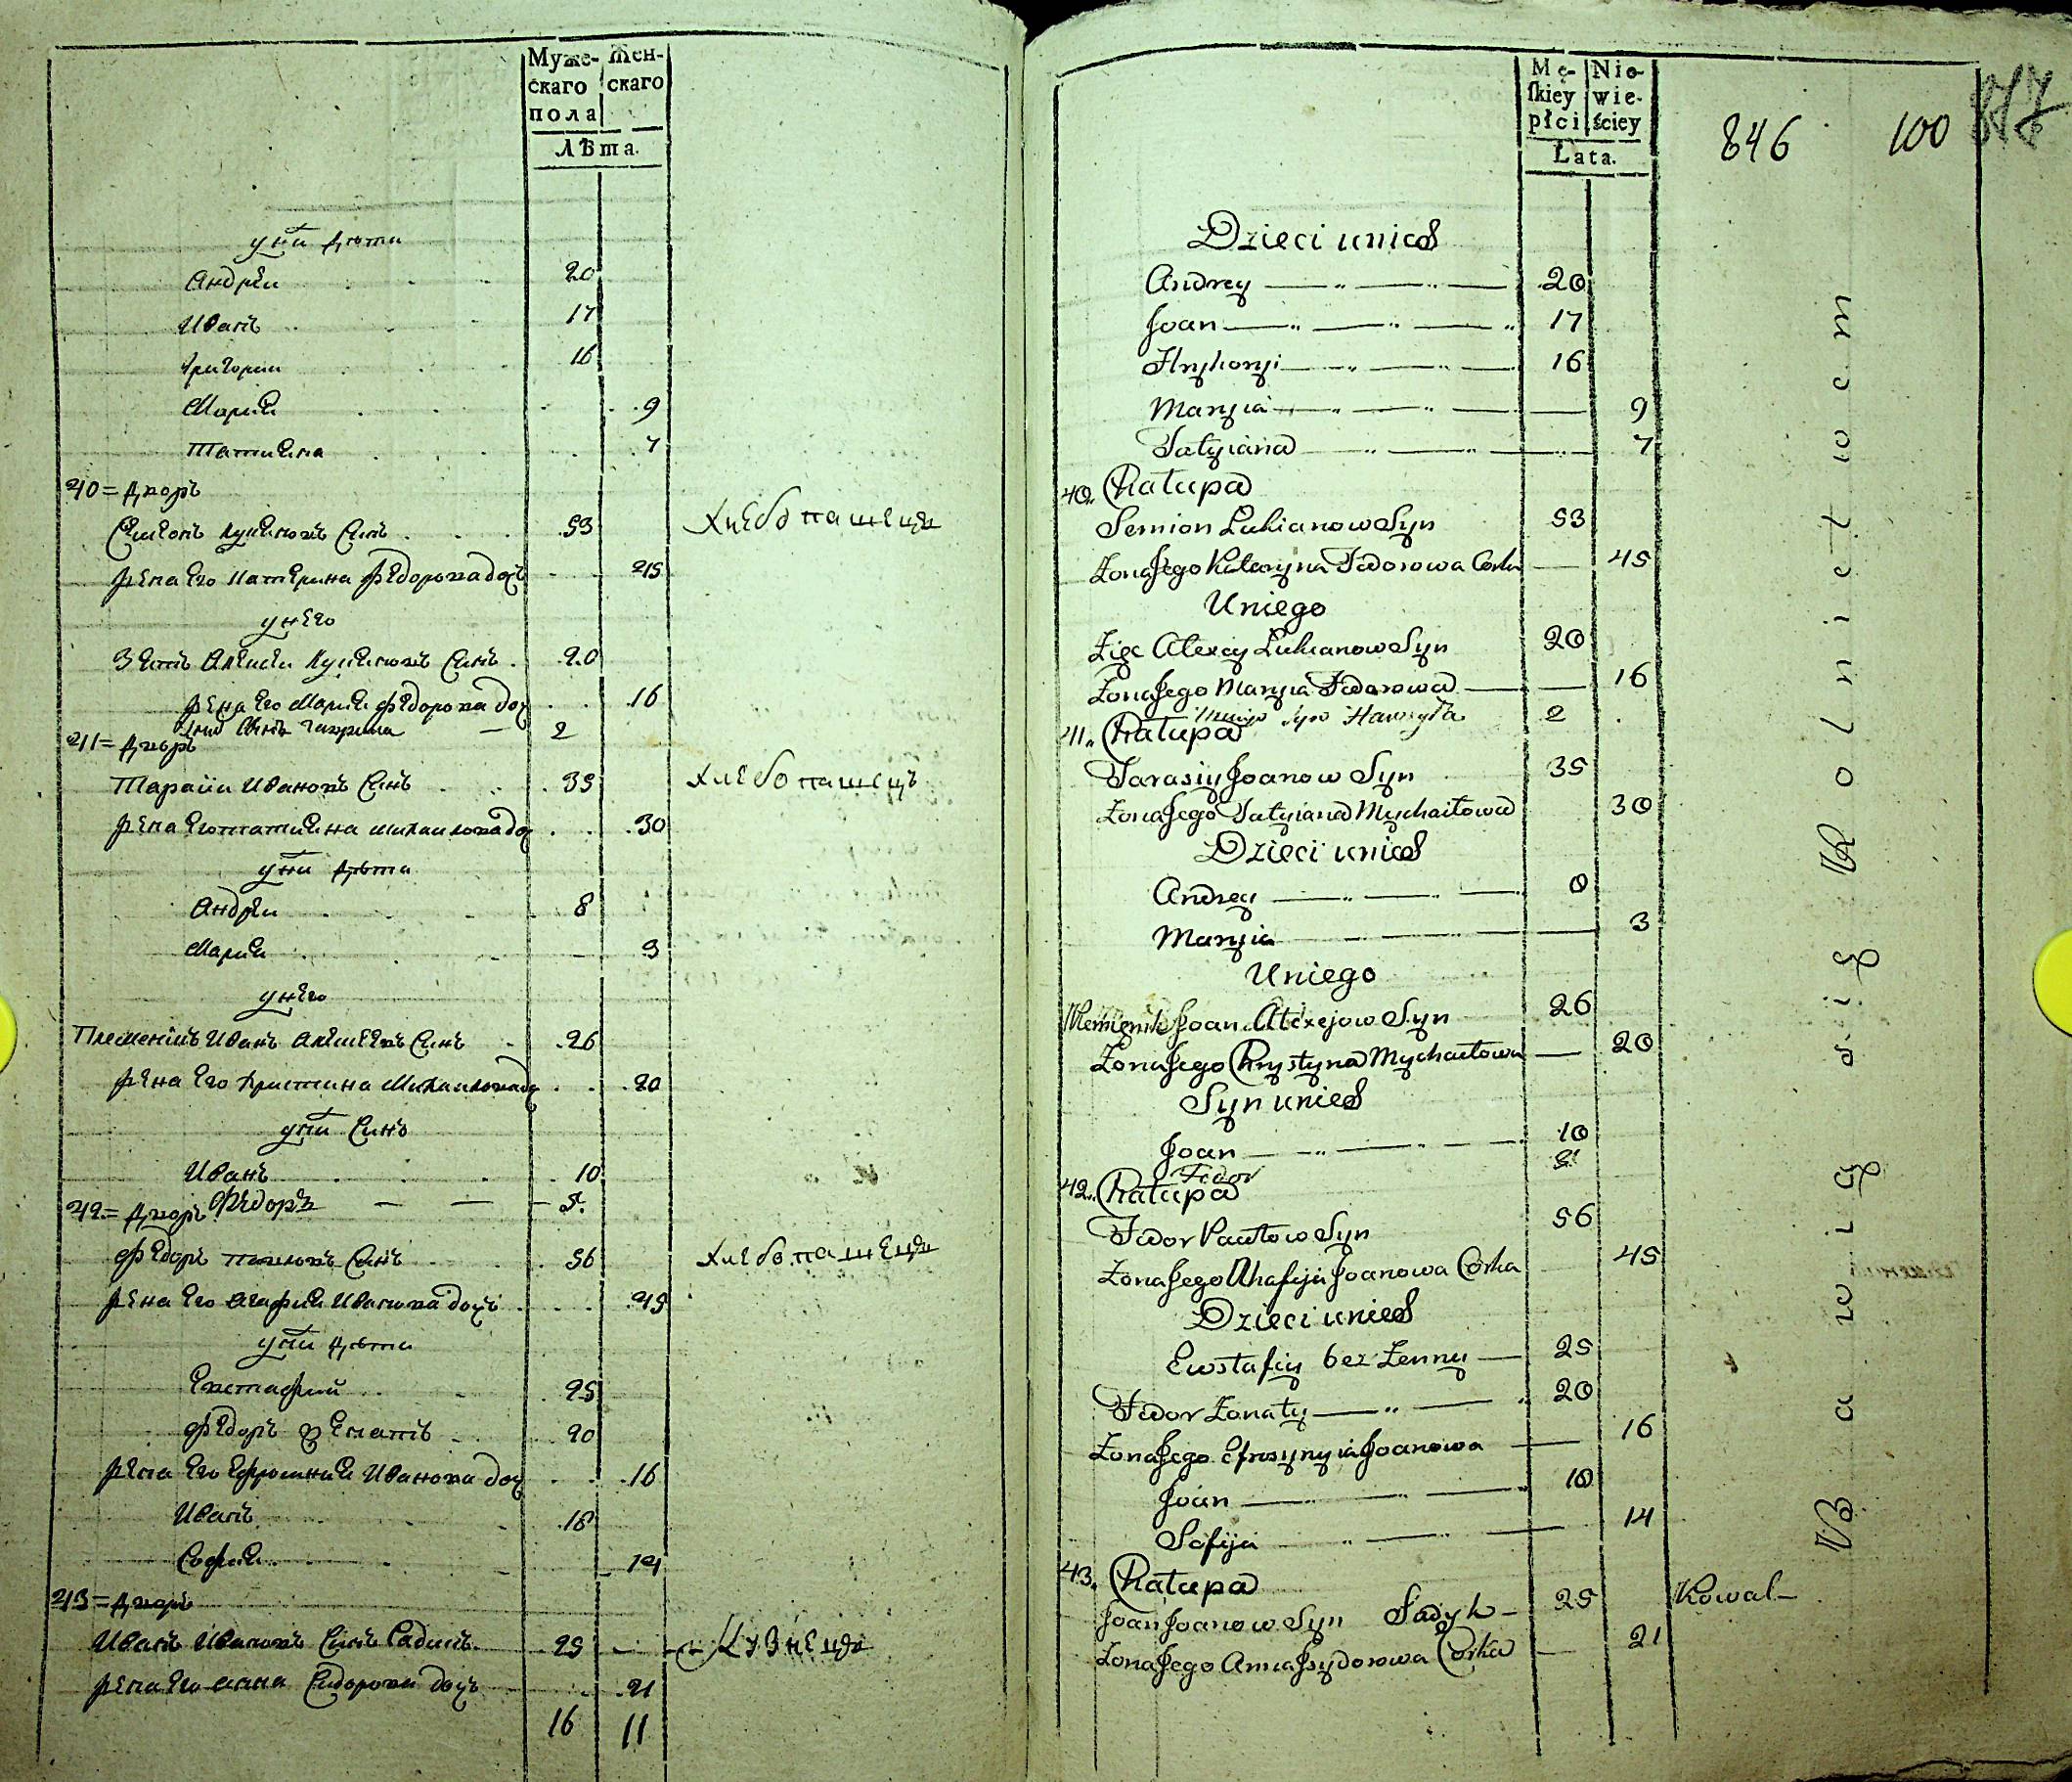 Муже-
скаго
пола
Жен-
скаго
Лѣта.
у ни дѣти
Андрей 20
Иванъ 17
Григории 16
Мария 9
Татиѧна 7
40 = Дворъ
Симонъ Лукяновъ Синъ 53 Хлебопашецъ
жена Его Катерина Федорова дочъ 45
у него
Зеть Алексеи Лукяновъ Синъ 20
жена Его Мария Федорова доч 16
у них Синъ Гаврила — 2
41 = Дворъ
Тараси Ивановъ Синъ 35 Хлебопашецъ
жена Его Татияна Михаилова доч 30
у ни дѣти
Андреи 8
Мария 3
у него
Племенікъ Иванъ Алексеевъ Синъ 26
жена Его Христина Михаилова до 20
у ни Синъ
Иванъ 10
Федоръ — — — 5.
42 = Дворъ
Федоръ Павловъ Синъ 56 Хлебопашецъ
жена Его Агафия Иванова дочъ 45
у ни дѣти
Евстафий 25
Федоръ женатъ 20
жена Его Ефросиния Иванова доч 16
Иванъ 18
София 14
43 = Дворъ
Иванъ Ивановъ Синъ Садикъ 25 Кузнецъ
жена Его Анна Сидорова дочъ 21
16 11
Mę-
ſkiey
płci
Nie-
wie-
ściey
Lata.
846 100
Dzieci unich
Andrey 20
Joan 17
Hryhoryi 16
Maryia 9
Tatyiana 7
40. Chałupa
Semion Lukianow Syn 53
Zona Jego Kateryna Fedorowa Corka 45
Uniego
Zięc Alexey Lukianow Syn 20
Zona Jego Maryia Fedorowa 16
Uniego Syn Hawryła 2
41. Chałupa
Tarasiy Joanow Syn 35
Zona Jego Tatyiana Mychaiłowa 30
Dzieci unich
Andrey 8
Maryia 3
Uniego
Plemięnik Joan Alexejow Syn 26
Zona Jego Chrystyna Mychaiłowa 20
Syn unich
Joan 10
Fedor 5
42. Chałupa
Fedor Pawłow Syn 56
Zona Jego Ahafija Joanowa Corka 45
Dzieci unich
Ewstafiy bez Zenny 25
Fedor Zonaty 20
Zona Jego Efrosynyia Joanowa 16
Joan 18
Sofija 14
43. Chałupa
Joan Joanow Syn Sadyk — 25 Kowal —
Zona Jego Anna Jsydorowa Corka 21
Bawią się Rolnictwem